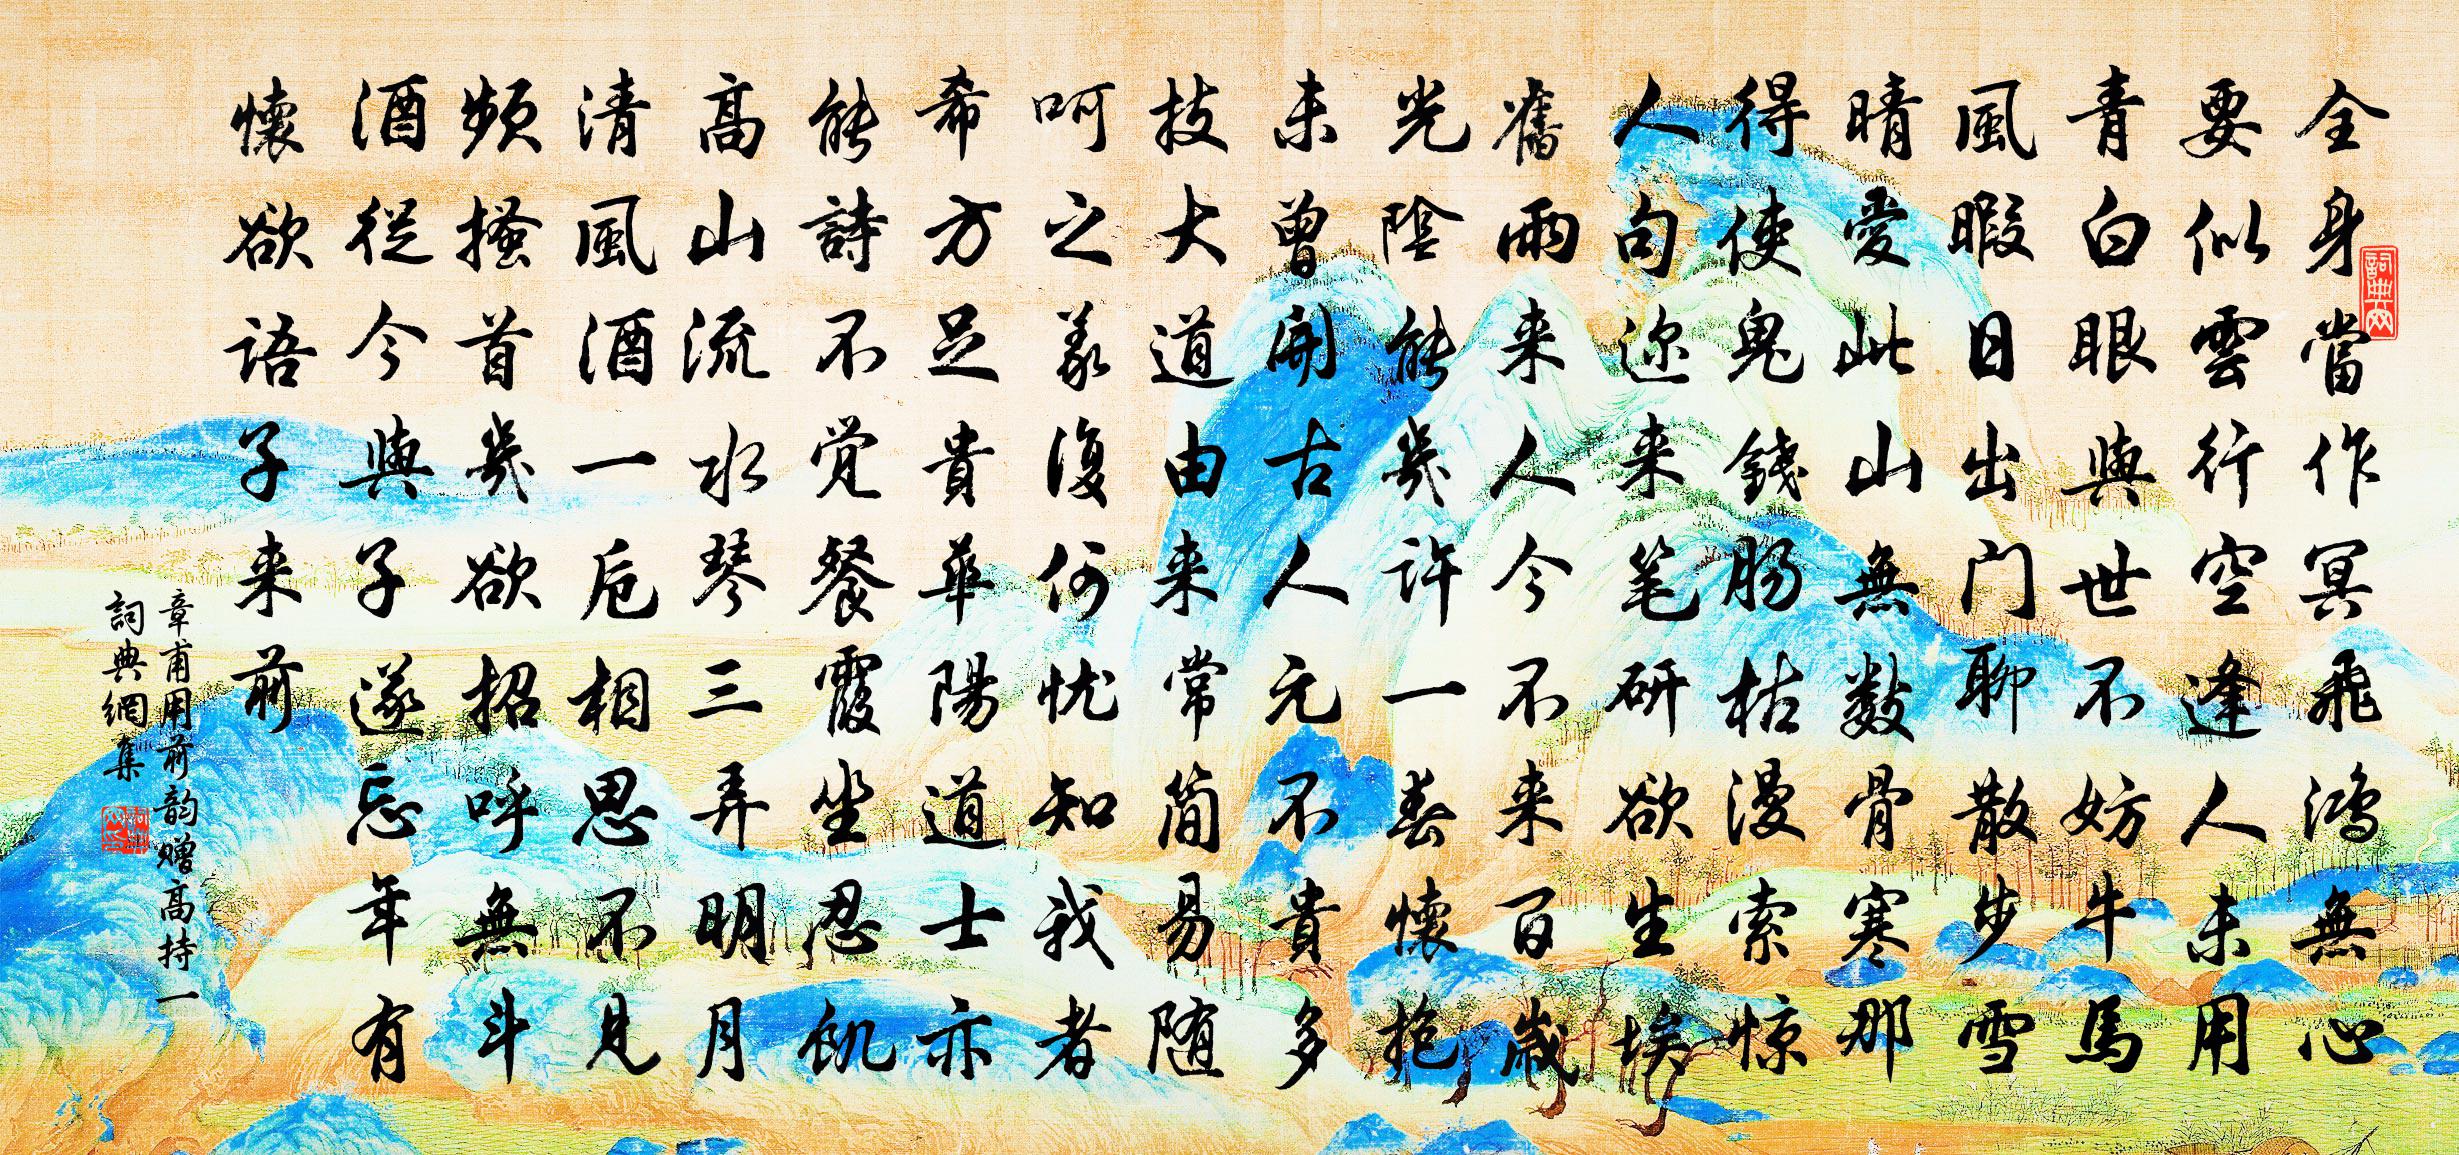 全身當作冥飛鴻無心
要似雲行空逢人未用
青白眼與世不妨牛馬
風暇日出门聊散步雪
晴愛此山無數骨寒那
得使鬼錢肠枯漫索惊
人句迩来笔研欲生埃
舊雨来人今不来百歲
光陰能幾許一春懷抱
未曾開古人元不貴多
技大道由来常简易随
呵之義復何忧知我者
希方足貴華陽道士亦
能詩不觉餐霞坐忍飢
高山流水琴三弄明月
清風酒一卮相思不見
频搔首幾欲招呼無斗
酒從今與子遂忘年有
懷欲語子来前
章甫用前韵赠高持一
詞典網集
詞典网